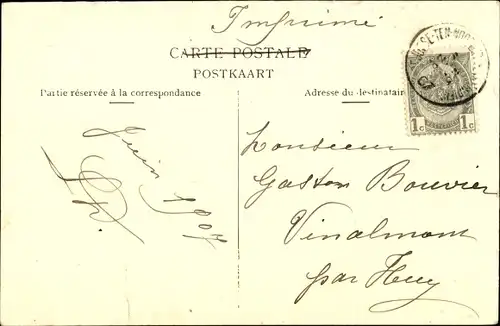 Imprimé
CARTE POSTALE
POSTKAART
Partie réservée à la correspondance
Adresse du destinataire
1c 1c
Juin 1907
Monsieur
Gaston Bouvier
Vinalmont
par Huy